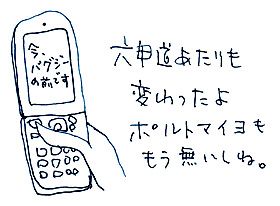 今、
バグジー
の前です
六甲道あたりも
変わったよ
ポルトマイヨも
もう無いしね。